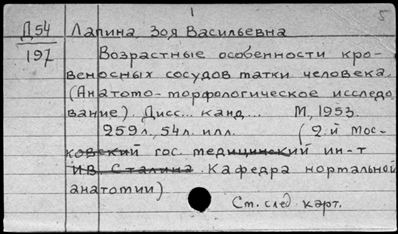 1 5
Д54 Лапина Зоя Васильевна
197 Возрастные особенности кро-
веносных сосудов матки человека.
(Анатомо-морфологическое исследо
вание). Дисс... канд... М, 1953.
259л., 54л. илл. (2-й Мос-
ковский гос. медицинский ин-т
ИВ. Сталина Кафедра нормальной
анатомии)
См. след карт.